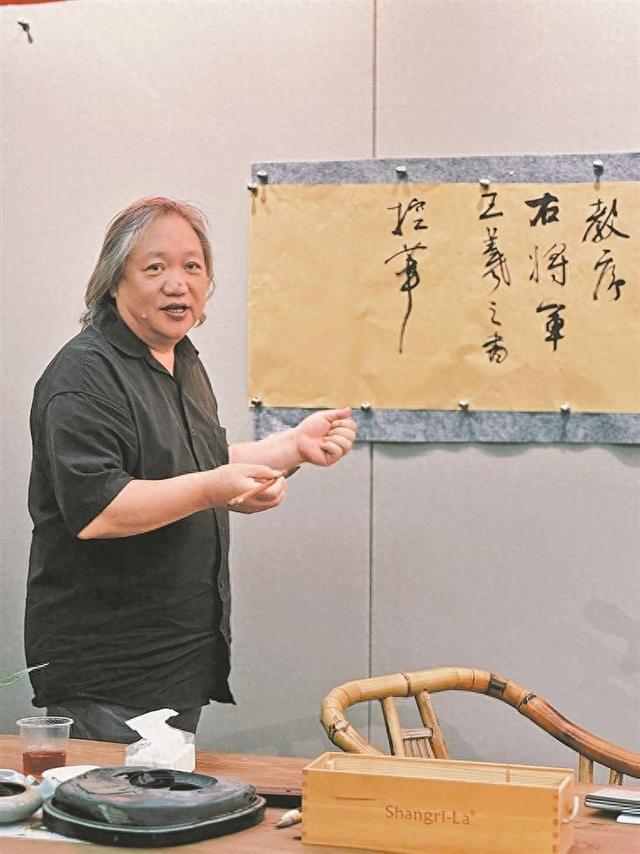 教序
右将軍
王羲之書
控筆
Shangri-La®